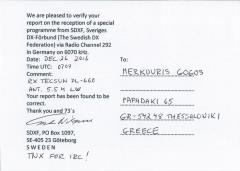 We are pleased to verify your
report on the reception of a special
programme from SDXF, Sveriges
DX-Förbund (The Swedish DX
Federation) via Radio Channel 292
in Germany on 6070 kHz.
Date: DEC 26 2016
Time UTC: 0707
Comment:
RX TECSUN PL-660
ANT. 5.5 M LW
Your report has been found to be
correct.
Thank you and 73's
SDXF, PO Box 1097,
SE-405 23 Göteborg
SWEDEN
TNX FOR IRC!
To:
MERKOURIS GOGOS
PAPADAKI 65
GR-54248 THESSALONIKI
GREECE